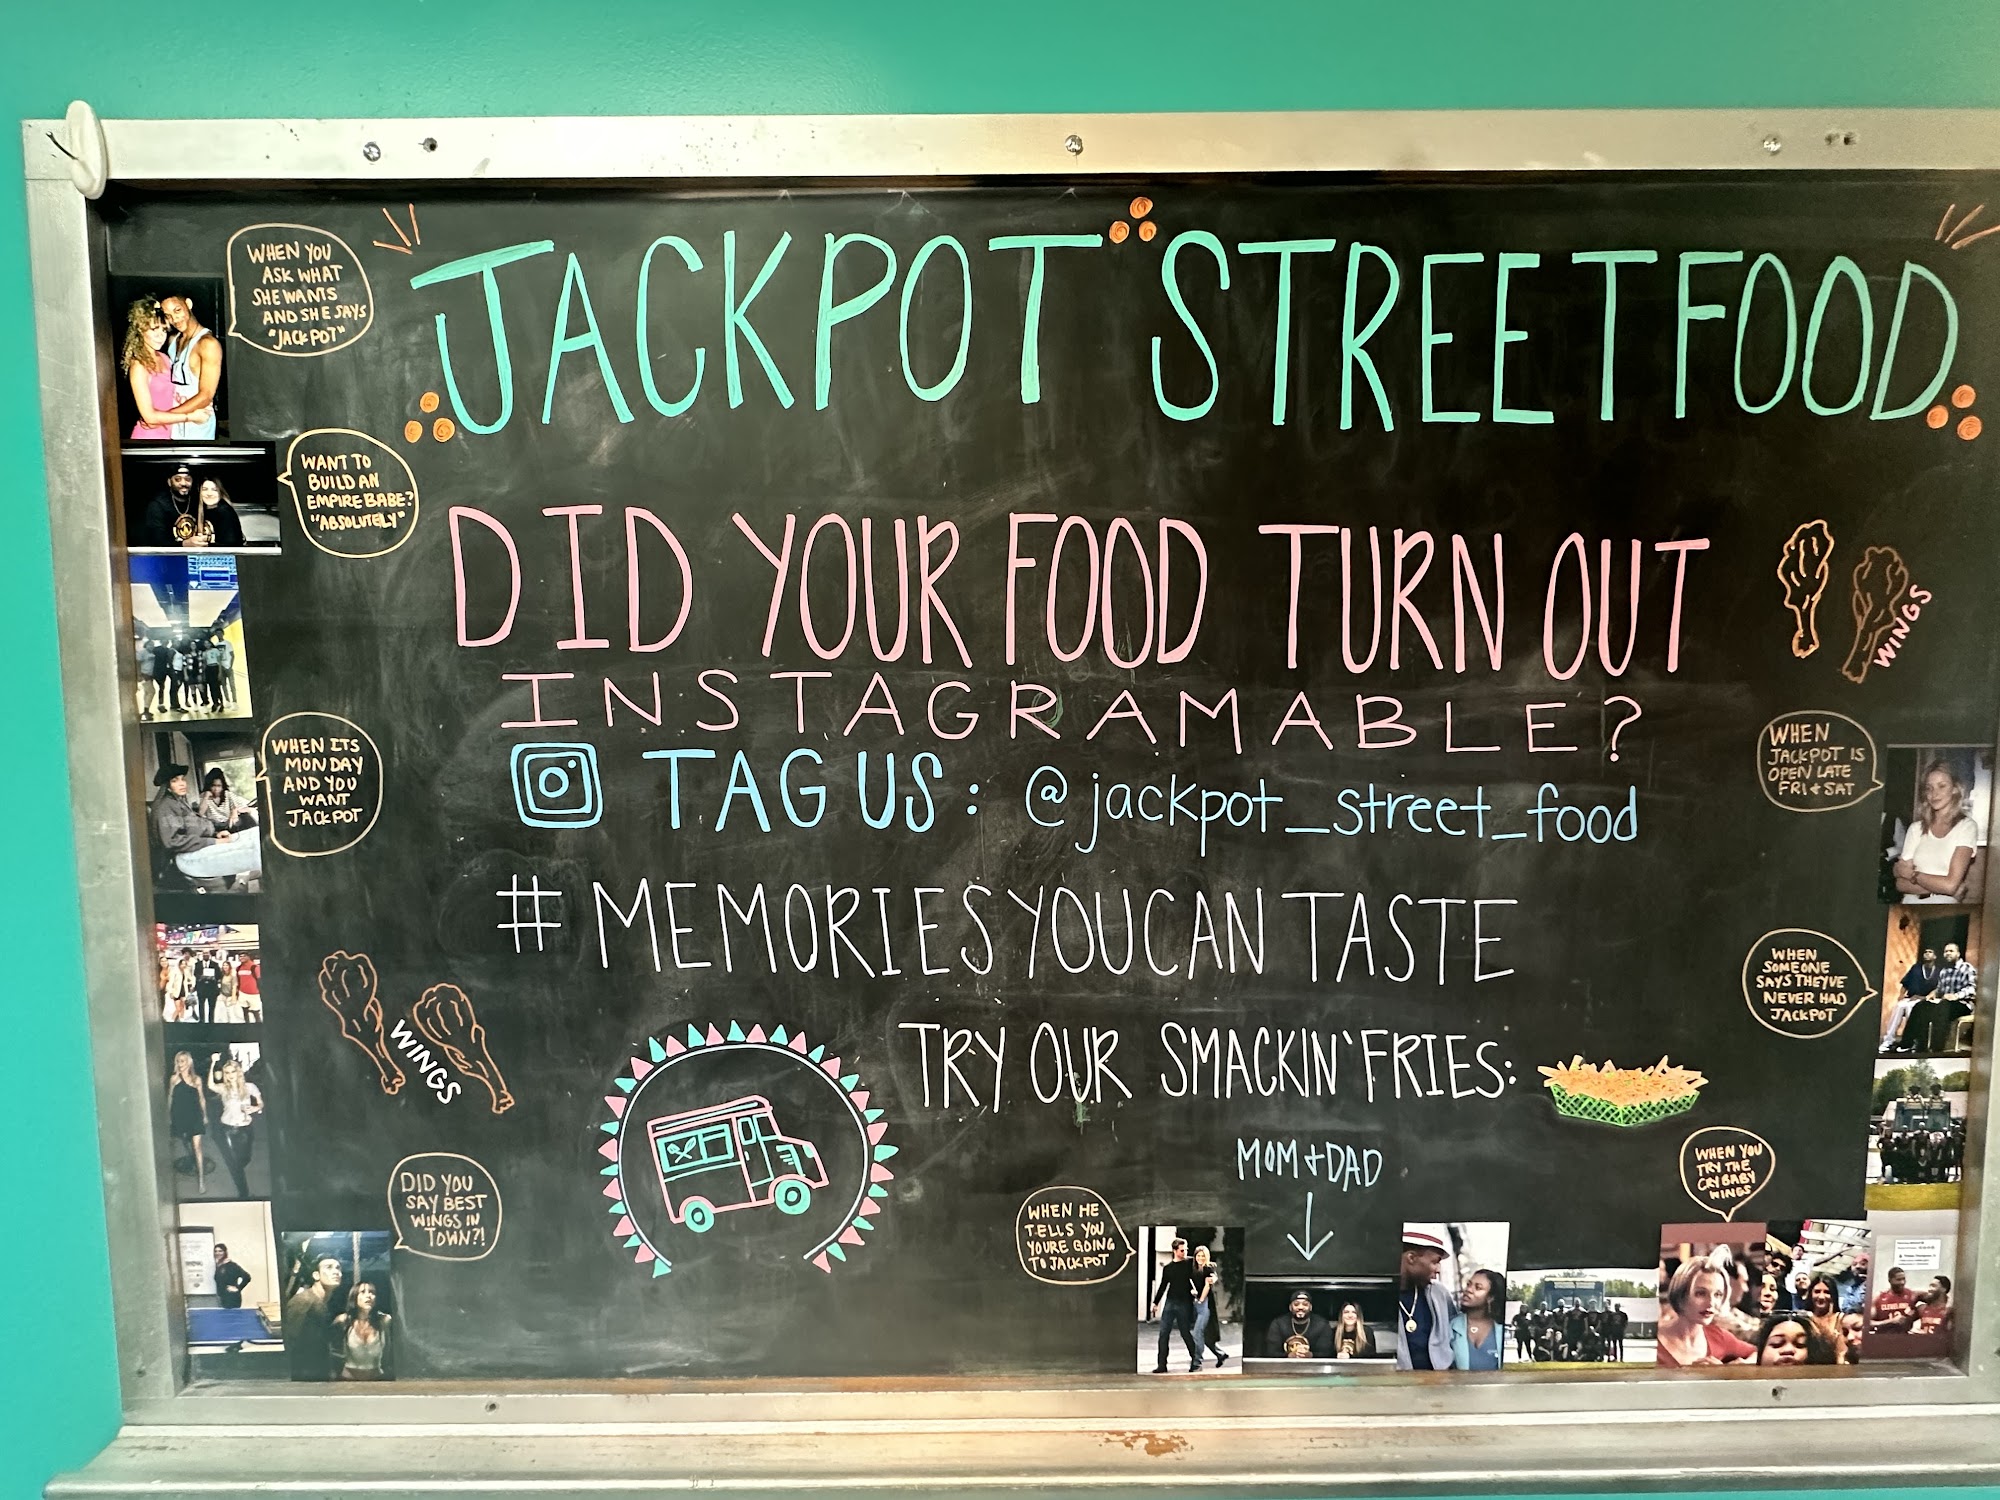 JACKPOT STREETFOOD
WHEN YOU
ASK WHAT
SHE WANTS
AND SHE SAYS
"JACKPOT"
WANT TO
BUILD AN
EMPIRE BABE?
"ABSOLUTELY"
DID YOUR FOOD TURN OUT
INSTAGRAMABLE?
TAG US: @jackpot_street_food
#MEMORIES YOU CAN TASTE
TRY OUR SMACKIN' FRIES:
WINGS
WHEN ITS
MONDAY
AND YOU
WANT
JACKPOT
WHEN
JACKPOT IS
OPEN LATE
FRI & SAT
WHEN
SOMEONE
SAYS THEYVE
NEVER HAD
JACKPOT
WINGS
DID YOU
SAY BEST
WINGS IN
TOWN?!
WHEN HE
TELLS YOU
YOURE GOING
TO JACKPOT
MOM + DAD
WHEN YOU
TRY THE
CRYBABY
WINGS
CLEVELAND